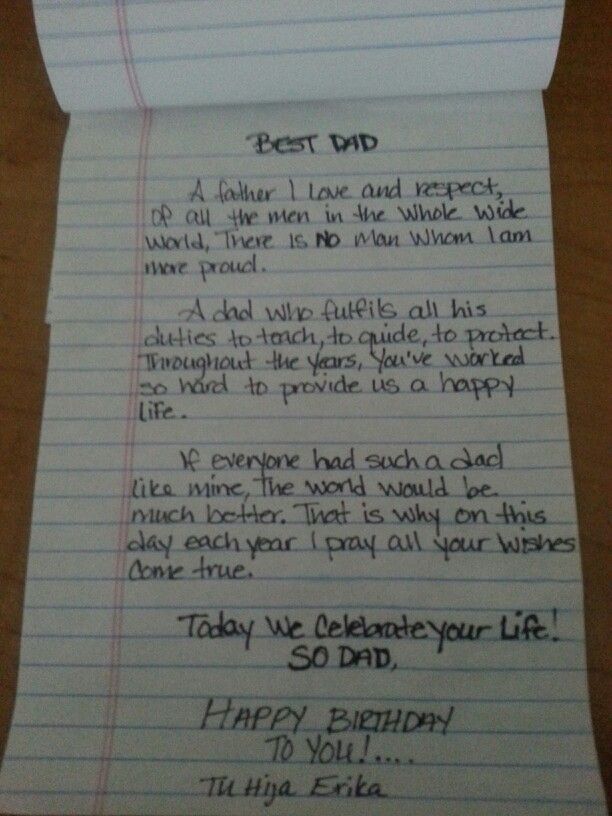 BEST DAD
A father I love and respect,
Of all the men in the whole wide
world, There is NO Man Whom I am
more proud.
A dad who fulfils all his
duties to teach, to guide, to protect.
Throughout the years, You've worked
so hard to provide us a happy
life.
If everyone had such a dad
like mine, The world would be
much better. That is why on this
day each year I pray all your wishes
Come true.
Today We Celebrate your Life!
SO DAD,
HAPPY BIRTHDAY
TO YOU!....
Tu Hija Erika